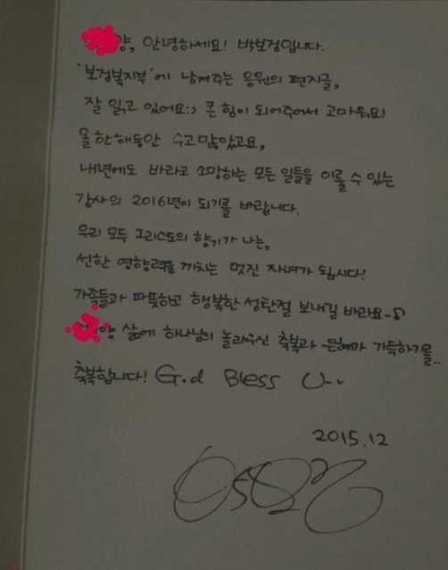 양, 안녕하세요! 박보검입니다.
'보검복지부'에 남겨주는 응원의 편지글,
잘 읽고 있어요:) 큰 힘이 되어주어서 고마워요!
올 한해동안 수고 많았고요,
내년에도 바라고 소망하는 모든 일들을 이룰 수 있는
감사의 2016년이 되기를 바랍니다.
우리 모두 그리스도의 향기가 나는,
선한 영향력을 끼치는 멋진 자녀가 됩시다!
가족들과 따뜻하고 행복한 성탄절 보내길 바라요~♪
양 삶에 하나님의 놀라우신 축복과 은혜가 가득하기를..
축복합니다! G.d Bless U..
2015.12